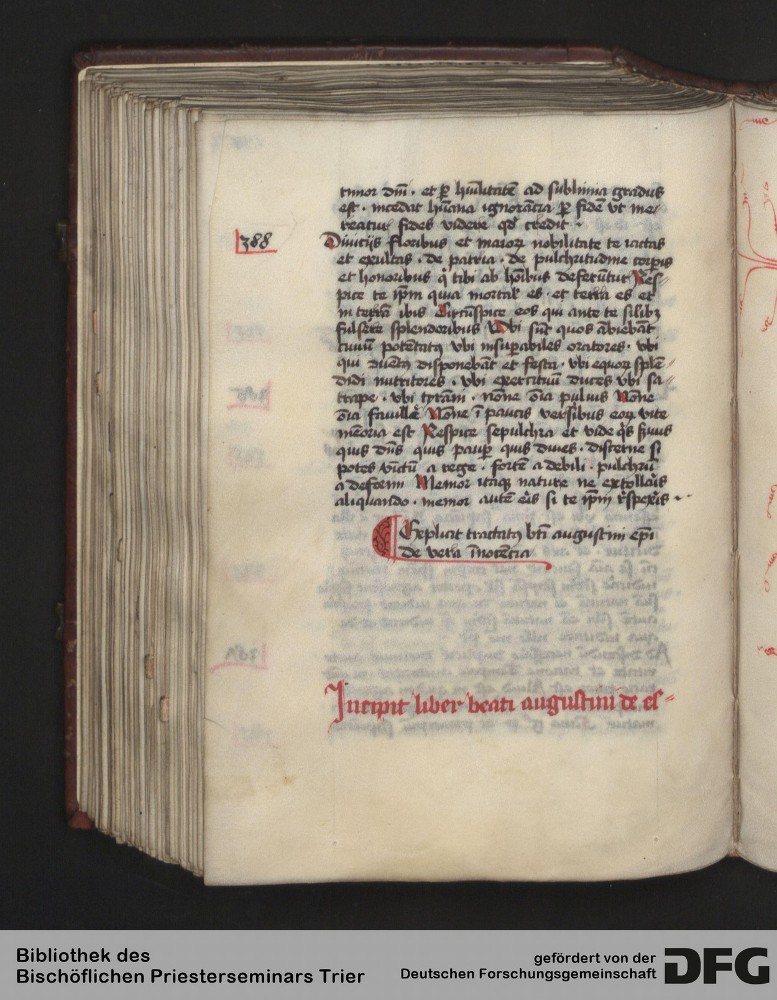 timor dm̄ . et ꝑ hūilitatē ad sublimia gradus
est . incedat hūana ignorācia ꝑ fidē vt me⸗
reatur fides videre qd̄ credit .
388
Diuicijs floribus et maioꝝ nobilitate te iactas
et exultas . de patria . de pulchritudine corpis
et honoribus q̄ tibi ab hōibus deferūtur Res⸗
pice te ip̄m quia mortal' es . et terra es et
in terrā ibis Circūspice eos qui ante te silibꝫ
fulsere splendoribus Vbi sūt quos ābiebāt
ciuiū potētatꝰ vbi insuꝑabiles oratores . vbi
qui disponebāt et festa . vbi equoꝝ splē⸗
didi nutritores . vbi exercituū duces vbi sa⸗
trape . vbi tyrāni . nōne ōia puluis Nōne
ōia fauille Nōne ī paucis versibus eoꝝ vite
mēoria est Respice sepulchra et vide q̄s s̄uus
quis dn̄s quis paupꝑ quis diues . discerne si
potes vīctū a rege . fortē a debili . pulchrū
a deformi Memor itaqꝫ nature ne extollaris
aliquando . memor autē eris si te ip̄m r̄spexeris .
Explicit tractatꝰ bt̄i augustini ep̄i
de vera īnocētia
Incipit liber beati augustini de es⸗
Bibliothek des
Bischöflichen Priesterseminars Trier
gefördert von der
Deutschen Forschungsgemeinschaft
DFG